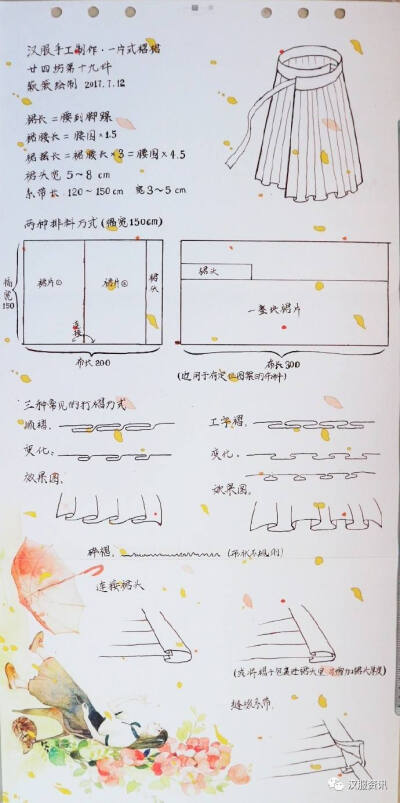 汉服手工制作·一片式褶裙
廿四坊第十九件
薇薇绘制 2017.7.12
裙长=腰到脚踝
裙腰长=腰围×1.5
裙摆长=裙腰长×3=腰围×4.5
裙头宽 5~8 cm
系带长 120~150cm 宽3~5cm
两种排料方式(幅宽150cm)
幅宽150
裙片①
裙片②
裙头
连接
布长200
裙头
一整块裙片
布长300
(适用于有定位图案的布料)
三种常见的打褶方式
顺褶:
变化:
效果图:
工字褶:
变化:
效果图:
碎褶:
(形状不规则)
连接裙头
(或将褶子包裹进裙头里 可增加裙头厚度)
缝缀系带
汉服资讯